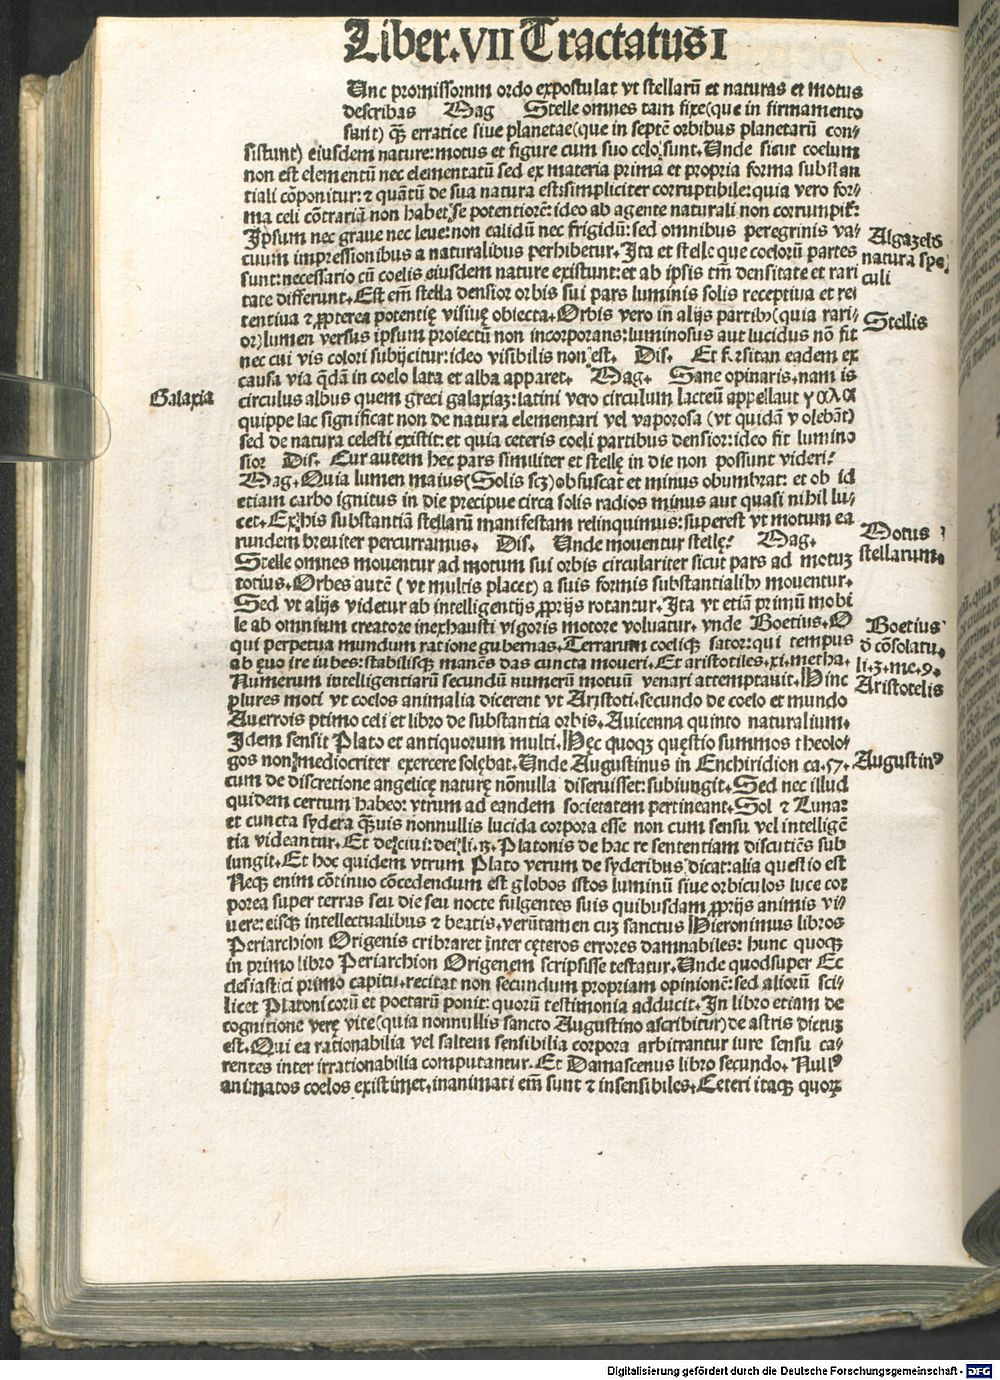 Liber.VII Tractatus I
Unc promissorum ordo expostulat vt stellarū et naturas et motus
describas Mag Stelle omnes tam fixe(que in firmamento
sunt) q̄ȝ erratice siue planetae(que in septē orbibus planetarū con-
sistunt) eiusdem nature:motus et figure cum suo celo sunt.Unde sicut coelum
non est elementū nec elementatū sed ex materia prima et propria forma substan
tiali cōponitur: ⁊ quātū de sua natura est:simpliciter corruptibile:quia vero for-
ma celi cōtrariā non habet se potentiorē: ideo ab agente naturali non corrumpit᷑:
Ipsum nec graue nec leue:non calidū nec frigidū:sed omnibus peregrinis va-
cuum impressionibus a naturalibus perhibetur.Ita et stelle que coelorū partes
sunt:necessario cū coelis eiusdem nature existunt:et ab ipsis tm̄ densitate et rari
tate differunt.Est em̄ stella densior orbis sui pars luminis solis receptiua et rei
tentiua ⁊ ꝓpterea potentię visiuę obiecta.Orbis vero in alijs partibȝ(quia rari-
or)lumen versus ipsum proiectū non incorporans:luminosus aut lucidus nō fit
nec cui vis colori subijcitur:ideo visibilis non est. Dis. Et forsitan eadem ex
causa via q̄dā in coelo lata et alba apparet. Mag. Sane opinaris.nam is
circulus albus quem greci galaxiaȝ:latini vero circulum lacteū appellaut γαλα
quippe lac significat non de natura elementari vel vaporosa (vt quidā volebāt)
sed de natura celesti existit:et quia ceteris coeli partibus densior:ideo fit lumino
sior Dis. Cur autem hec pars similiter et stellę in die non possunt videri?
Mag.Quia lumen maius(Solis scȝ)obfuscat et minus obumbrat: et ob id
etiam carbo ignitus in die precipue circa solis radios minus aut quasi nihil lu-
cet.Ex his substantiā stellarū manifestam relinquimus:superest vt motum ea
rundem breuiter percurramus. Dis. Unde mouentur stellę? Mag.
Stelle omnes mouentur ad motum sui orbis circulariter sicut pars ad motuȝ
totius.Orbes autē ( vt multis placet) a suis formis substantialibȝ mouentur.
Sed vt alijs videtur ab intelligentijs ꝓprijs rotantur.Ita vt etiā primū mobi
le ab omnium creatore inexhausti vigoris motore voluatur. vnde Boetius.O
qui perpetua mundum ratione gubernas.Terrarum coeliqȝ sator:qui tempus
ab ęuo ire iubes:stabilisqȝ manēs das cuncta moueri.Et aristotiles.xi.metha.
Numerum intelligentiarū secundū numerū motuū venari attemptauit.Hinc
plures moti vt coelos animalia dicerent vt Aristoti.secundo de coelo et mundo
Auerrois primo celi et libro de substantia orbis.Auicenna quinto naturalium.
Idem sensit Plato et antiquorum multi.Hęc quoqȝ questio summos theolo-
gos non mediocriter exercere solębat.Unde Augustinus in Enchiridion ca.57.
cum de discretione angelicę naturę nōnulla diseruisset:subiungit.Sed nec illud
quidem certum habeo: vtrum ad eandem societatem pertineant.Sol ⁊ Luna:
et cuncta sydera q̄uis nonnullis lucida corpora esse non cum sensu vel intelligē
tia videantur.Et de ciui: dei li.13.Platonis de hac re sententiam discutiēs sub
iungit.Et hoc quidem vtrum Plato verum de syderibus dicat:alia questio est
Neqȝ enim cōtinuo cōcedendum est globos istos luminū siue orbiculos luce cor
porea super terras seu die seu nocte fulgentes suis quibusdam ꝓprijs animis vi-
uere: eisqȝ intellectualibus ⁊ beatis.verūtamen cuȝ sanctus Hieronimus libros
Periarchion Origenis cribraret inter cęteros errores damnabiles: hunc quoqȝ
in primo libro Periarchion Origenem scripsisse testatur.Unde quodsuper Ec
clesiastici primo capitu.recitat non secundum propriam opinionē:sed aliorū sci-
licet Platonicorū et poetarū ponit: quorū testimonia adducit.In libro etiam de
cognitione verę vite(quia nonnullis sancto Augustino ascribitur)de astris dictuȝ
est.Qui ea rationabilia vel saltem sensibilia corpora arbitrantur iure sensu ca-
rentes inter irrationabilia computantur.Et Damascenus libro secundo. Nullꝰ
animatos coelos existimet.inanimati em̄ sunt ⁊ insensibiles.Ceteri itaqȝ quorȝ
Galaxia
Algazelis
natura spe
culi
Stellis
Motus
stellarum.
Boetius
d̄ cōsolatu.
li.3.me.9.
Aristotelis
Augustinꝰ
Digitalisierung gefördert durch die Deutsche Forschungsgemeinschaft - DFG